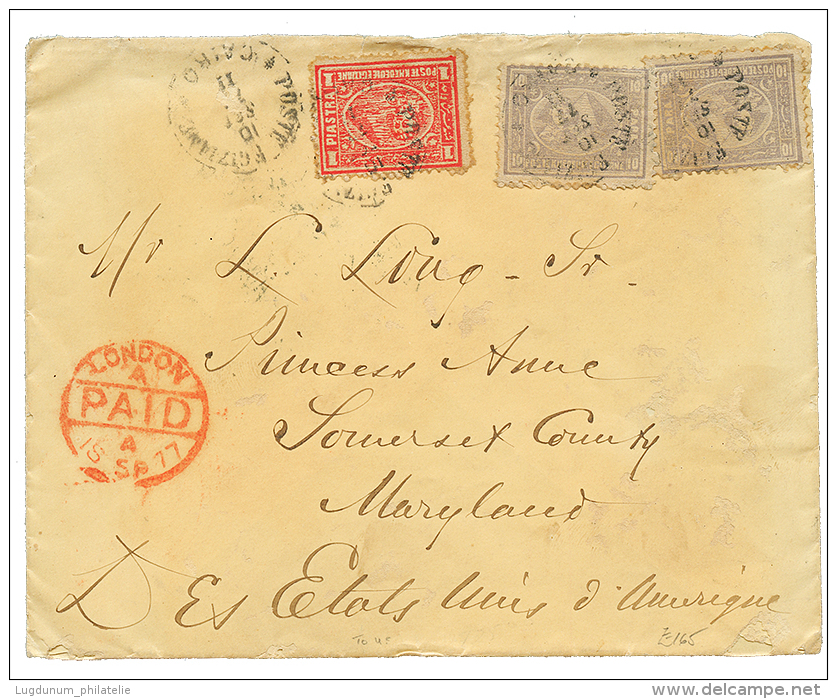 POSTE EGIZIANE
CAIRO
POSTE KHEDEUIE EGIZIANE
PIASTRA
1
1
10
10
10
10
10
PARA
Mr L Long - Sr.
Princess Anne
Somerset County
Maryland
Des Etats Unis d'Amerique
LONDON
A
PAID
A
15 SP 77
To US
£165
Lugdunum_philatelie
www.delcampe.net